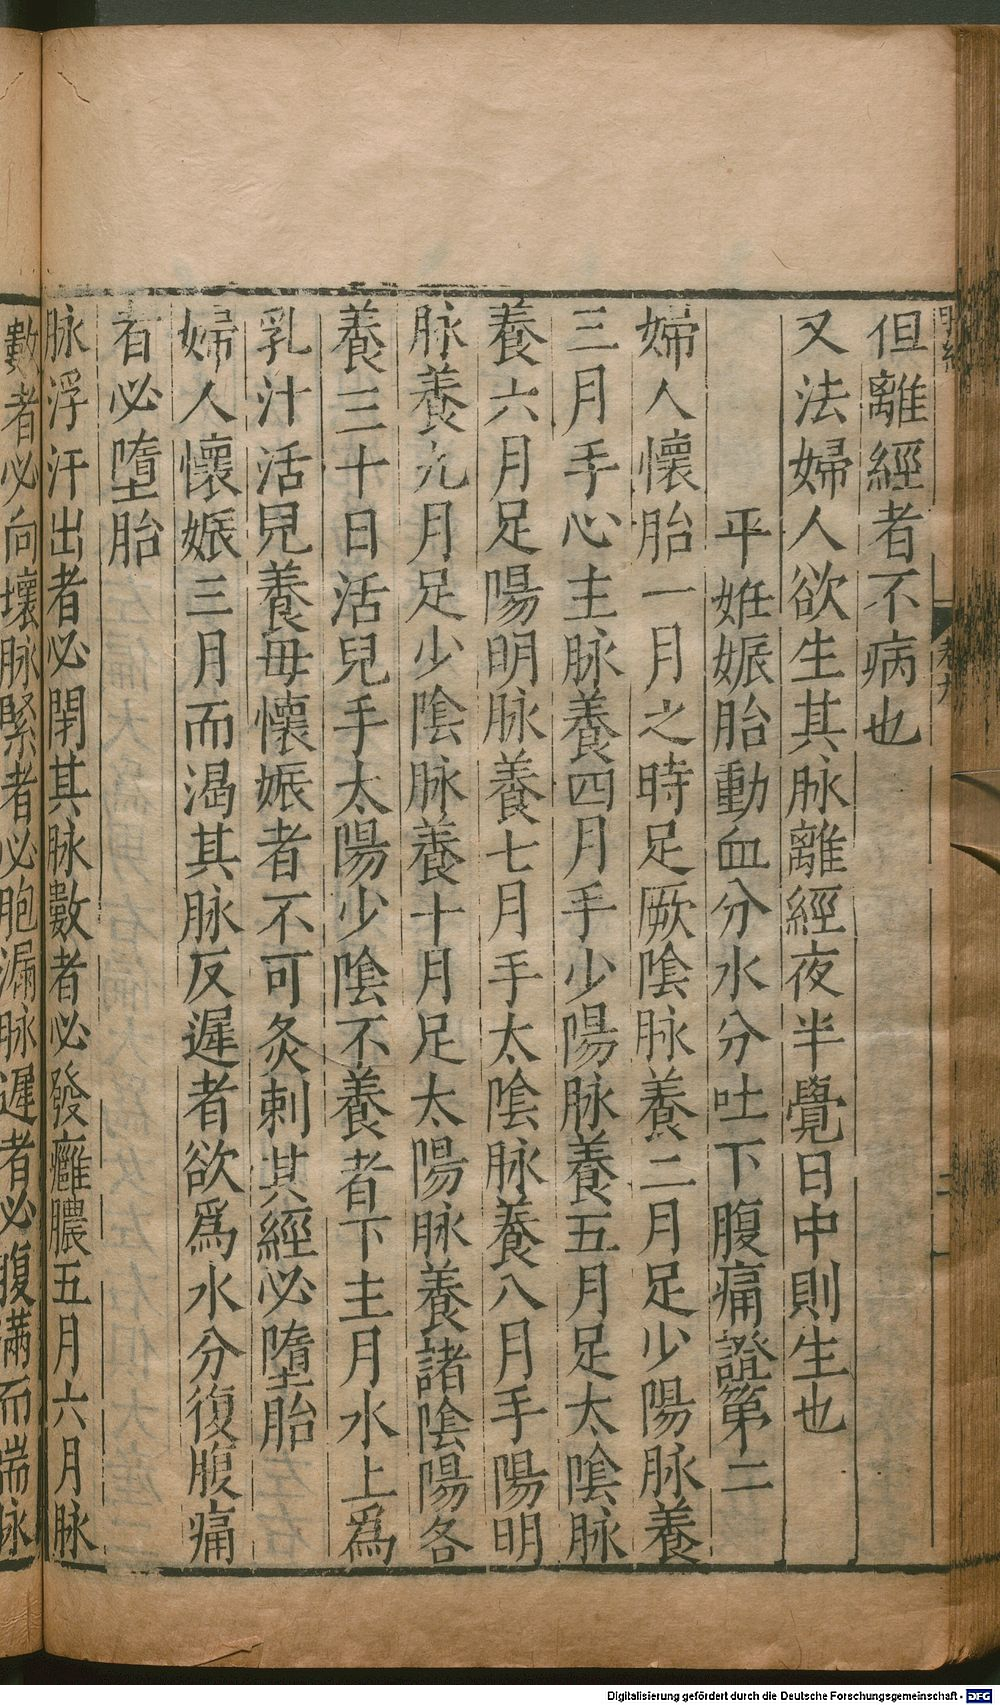 但離經者不病也
又法婦人欲生其脉離經夜半覺日中則生也
平姙娠胎動血分水分吐下腹痛證第二
婦人懷胎一月之時足厥陰脉養二月足少陽脉養
三月手心主脉養四月手少陽脉養五月足太陰脉
養六月足陽明脉養七月手太陰脉養八月手陽明
脉養九月足少陰脉養十月足太陽脉養諸陰陽各
養三十日活兒手太陽少陰不養者下主月水上爲
乳汁活兒養母懷娠者不可灸刺其經必墮胎
婦人懷娠三月而渴其脉反遲者欲爲水分復腹痛
者必墮胎
脉浮汗出者必閉其脉數者必發癰膿五月六月脉
數者必向壞脉緊者必胞漏脉遲者必腹滿而喘脉
卷九
二
Digitalisierung gefördert durch die Deutsche Forschungsgemeinschaft - DFG